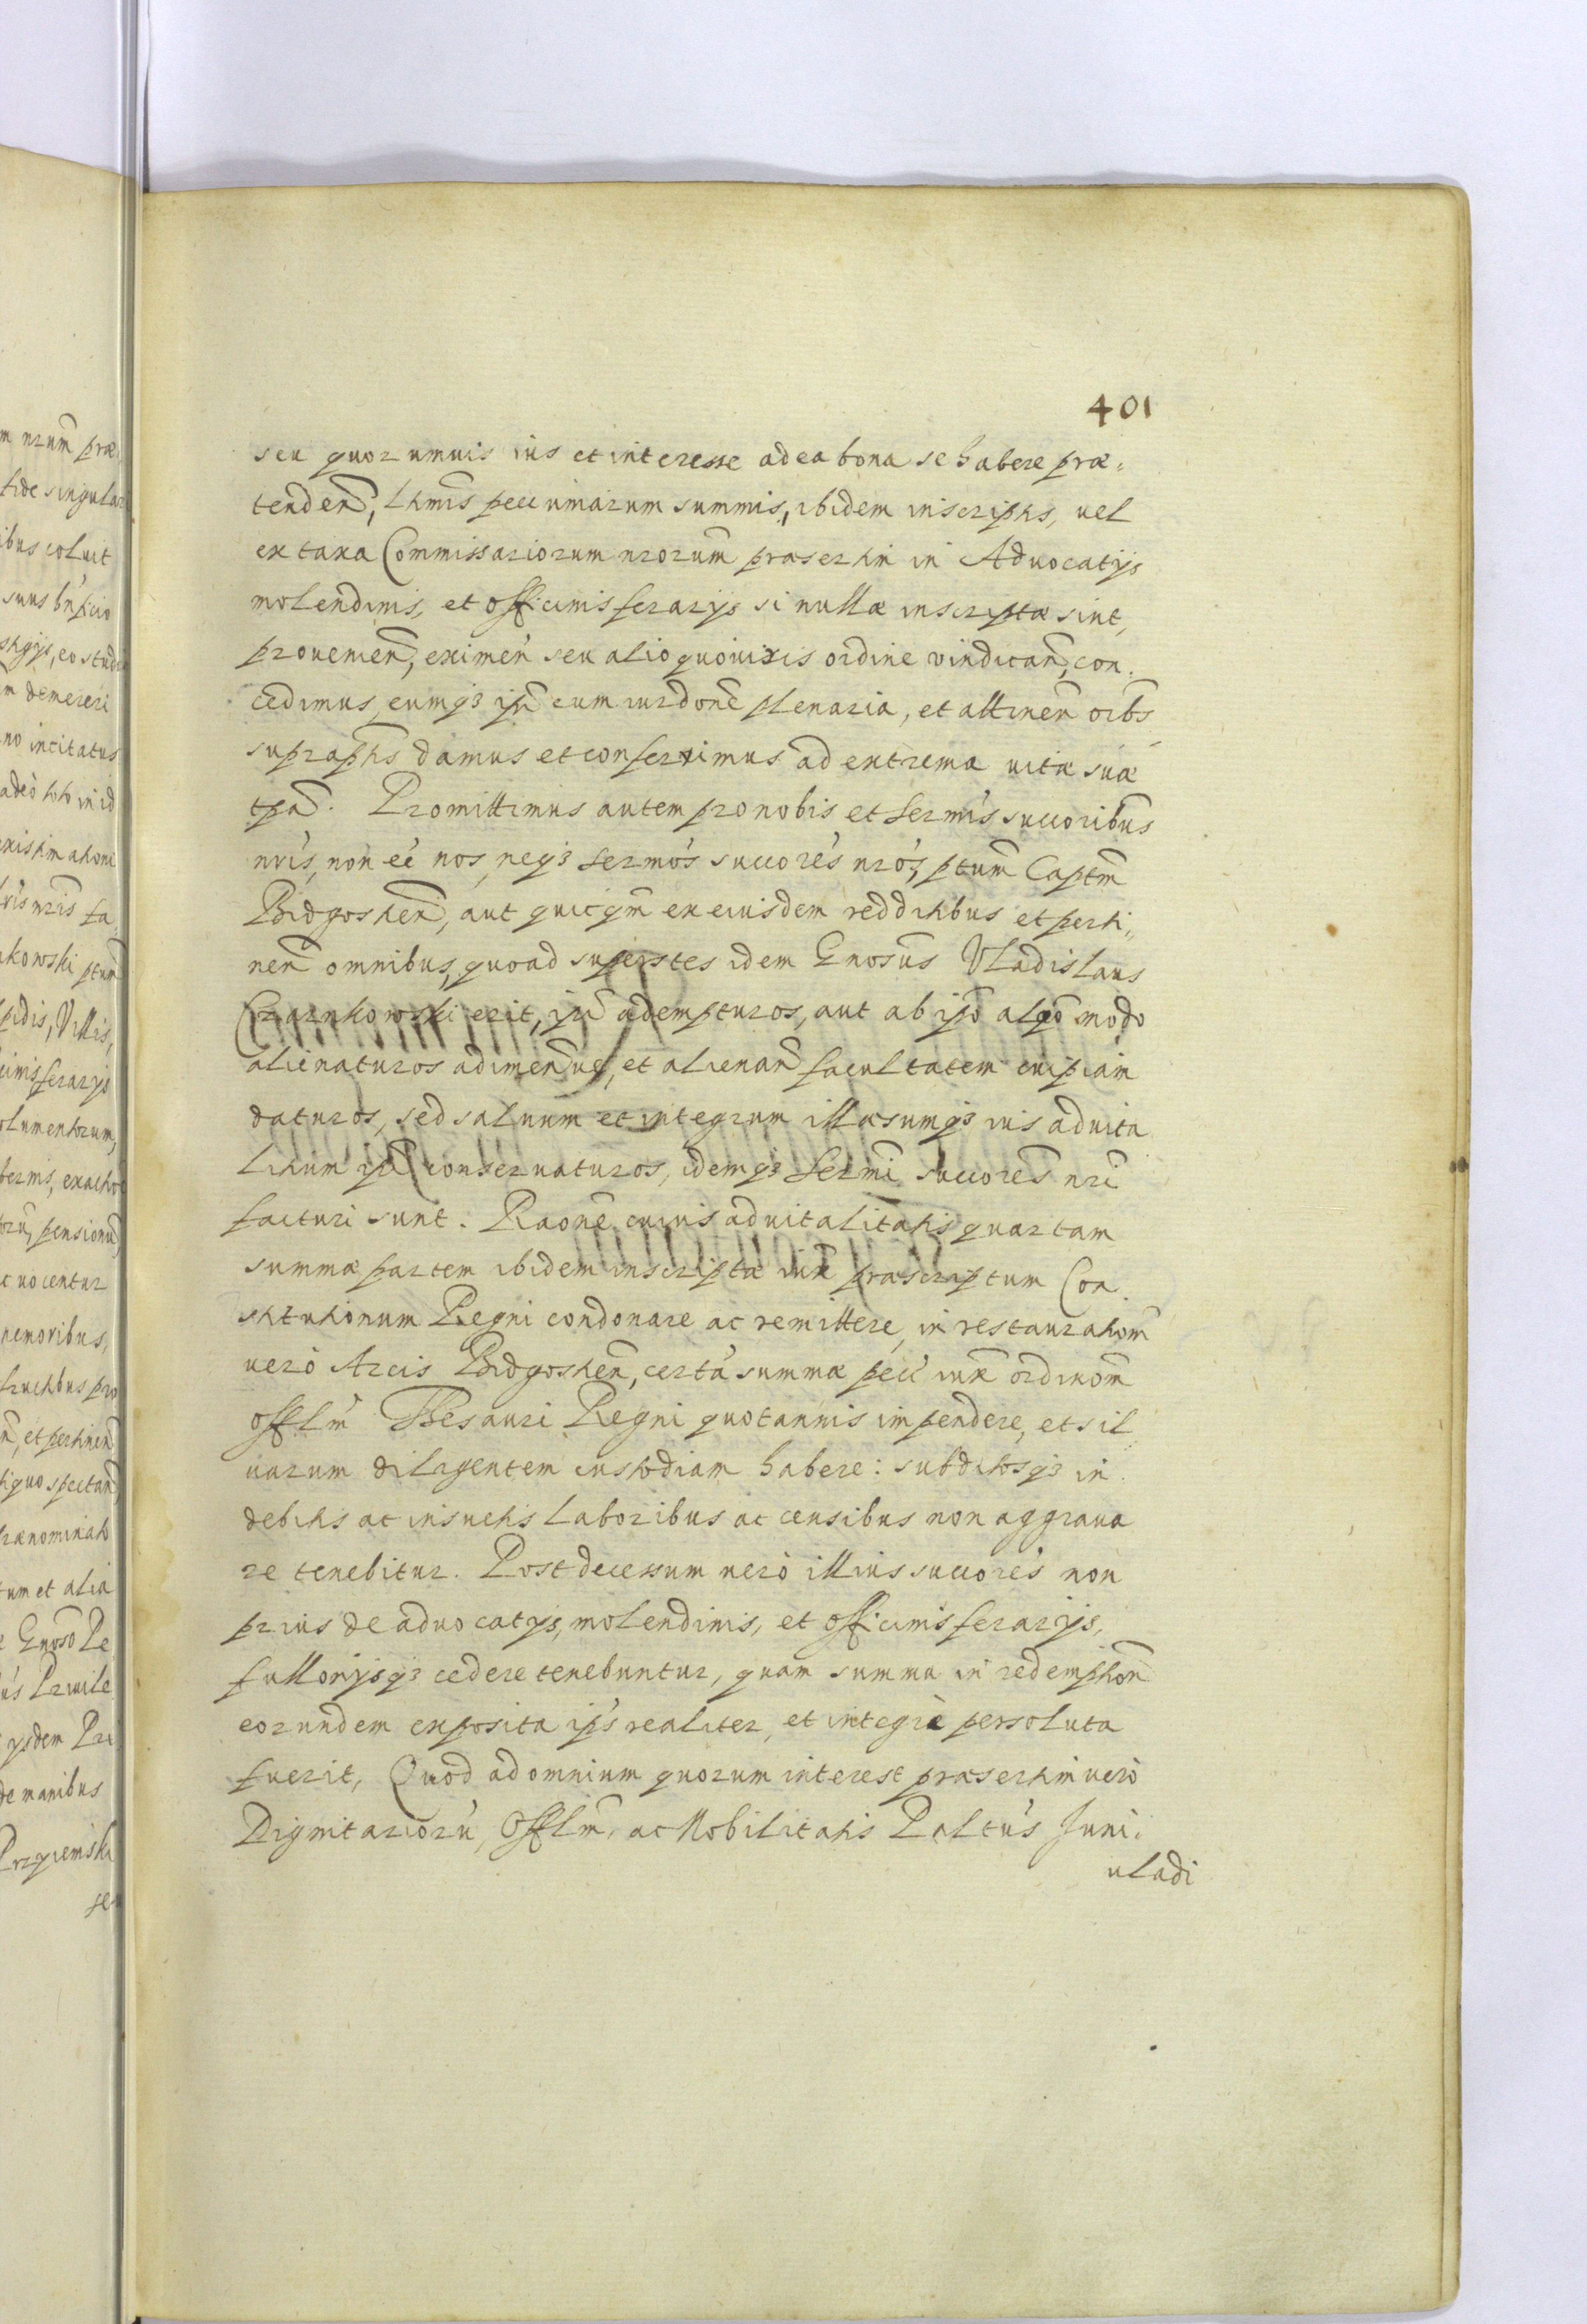 401
seu quorumuis ius et interesse ad ea bona se habere præ,
tenden̄, l̄tmis pecuniarum summis, ibidem inscriptis, uel
ex taxa Commissariorum nrorum̄ præsertim in Aduocatijs
molendinis, et officinis ferarijs si nullæ inscriptæ sint,
prouenien̄, eximen̄ seu alio quouixis ordine vindican̄, con,
cedimus, eumq3 ip̄i cum iurdone plenaria, et attinen̄ oib̄s
supraptis damus et conferximus ad extrema vitæ suæ
tp̄a. Promittimus autem pro nobis et Sermis succoribus
nrīs, non eē nos, neq3 Sermos succores nrōs, ptum̄ Captm̄
Bidgostien̄, aut quicqm̄ ex eiusdem redditibus et perti,,
nen̄ omnibus, quoad superstes idem Gnosus Vladislaus
Czarnkowski erit, ip̄i adempturos, aut ab ip̄o alq̄o modo
alienaturos adimen̄ue, et alienan̄ facultatem cuipiam
daturos, sed saluum et integrum illæsumq3 ius aduita
litium ip̄i conseruaturos, idemq3 Sermī succores nrī
facturi sunt. Raone cuius aduitalitatis quartam
summæ partem ibidem inscriptæ iux̄ præscriptum Con,
stitutionum Regni condonare ac remittere, in restaurationem̄
uero Arcis Bidgostien̄, certā summæ pec̄ iux̄ ordinom̄
offlm̄ Thesauri Regni quotannis impendere, et sil,,
uarum diligentem custodiam habere: subditosq3 in,
debitis ac insuetis laboribus ac censibus non aggraua
re tenebitur. Post decessum uerò illius succorēs non
prius de aduocatijs, molendinis, et officinis ferarijs,
fullonijsq3 cedere tenebuntur, quam summa in redemption̄
eorundem exposita ip̄s realiter, et integrè persoluta
fuerit, Quod ad omnium quorum interest præsertim uerò
Dignitariorū, Offlm̄, ac Nobilitatis Paltūs Juni,
uladi